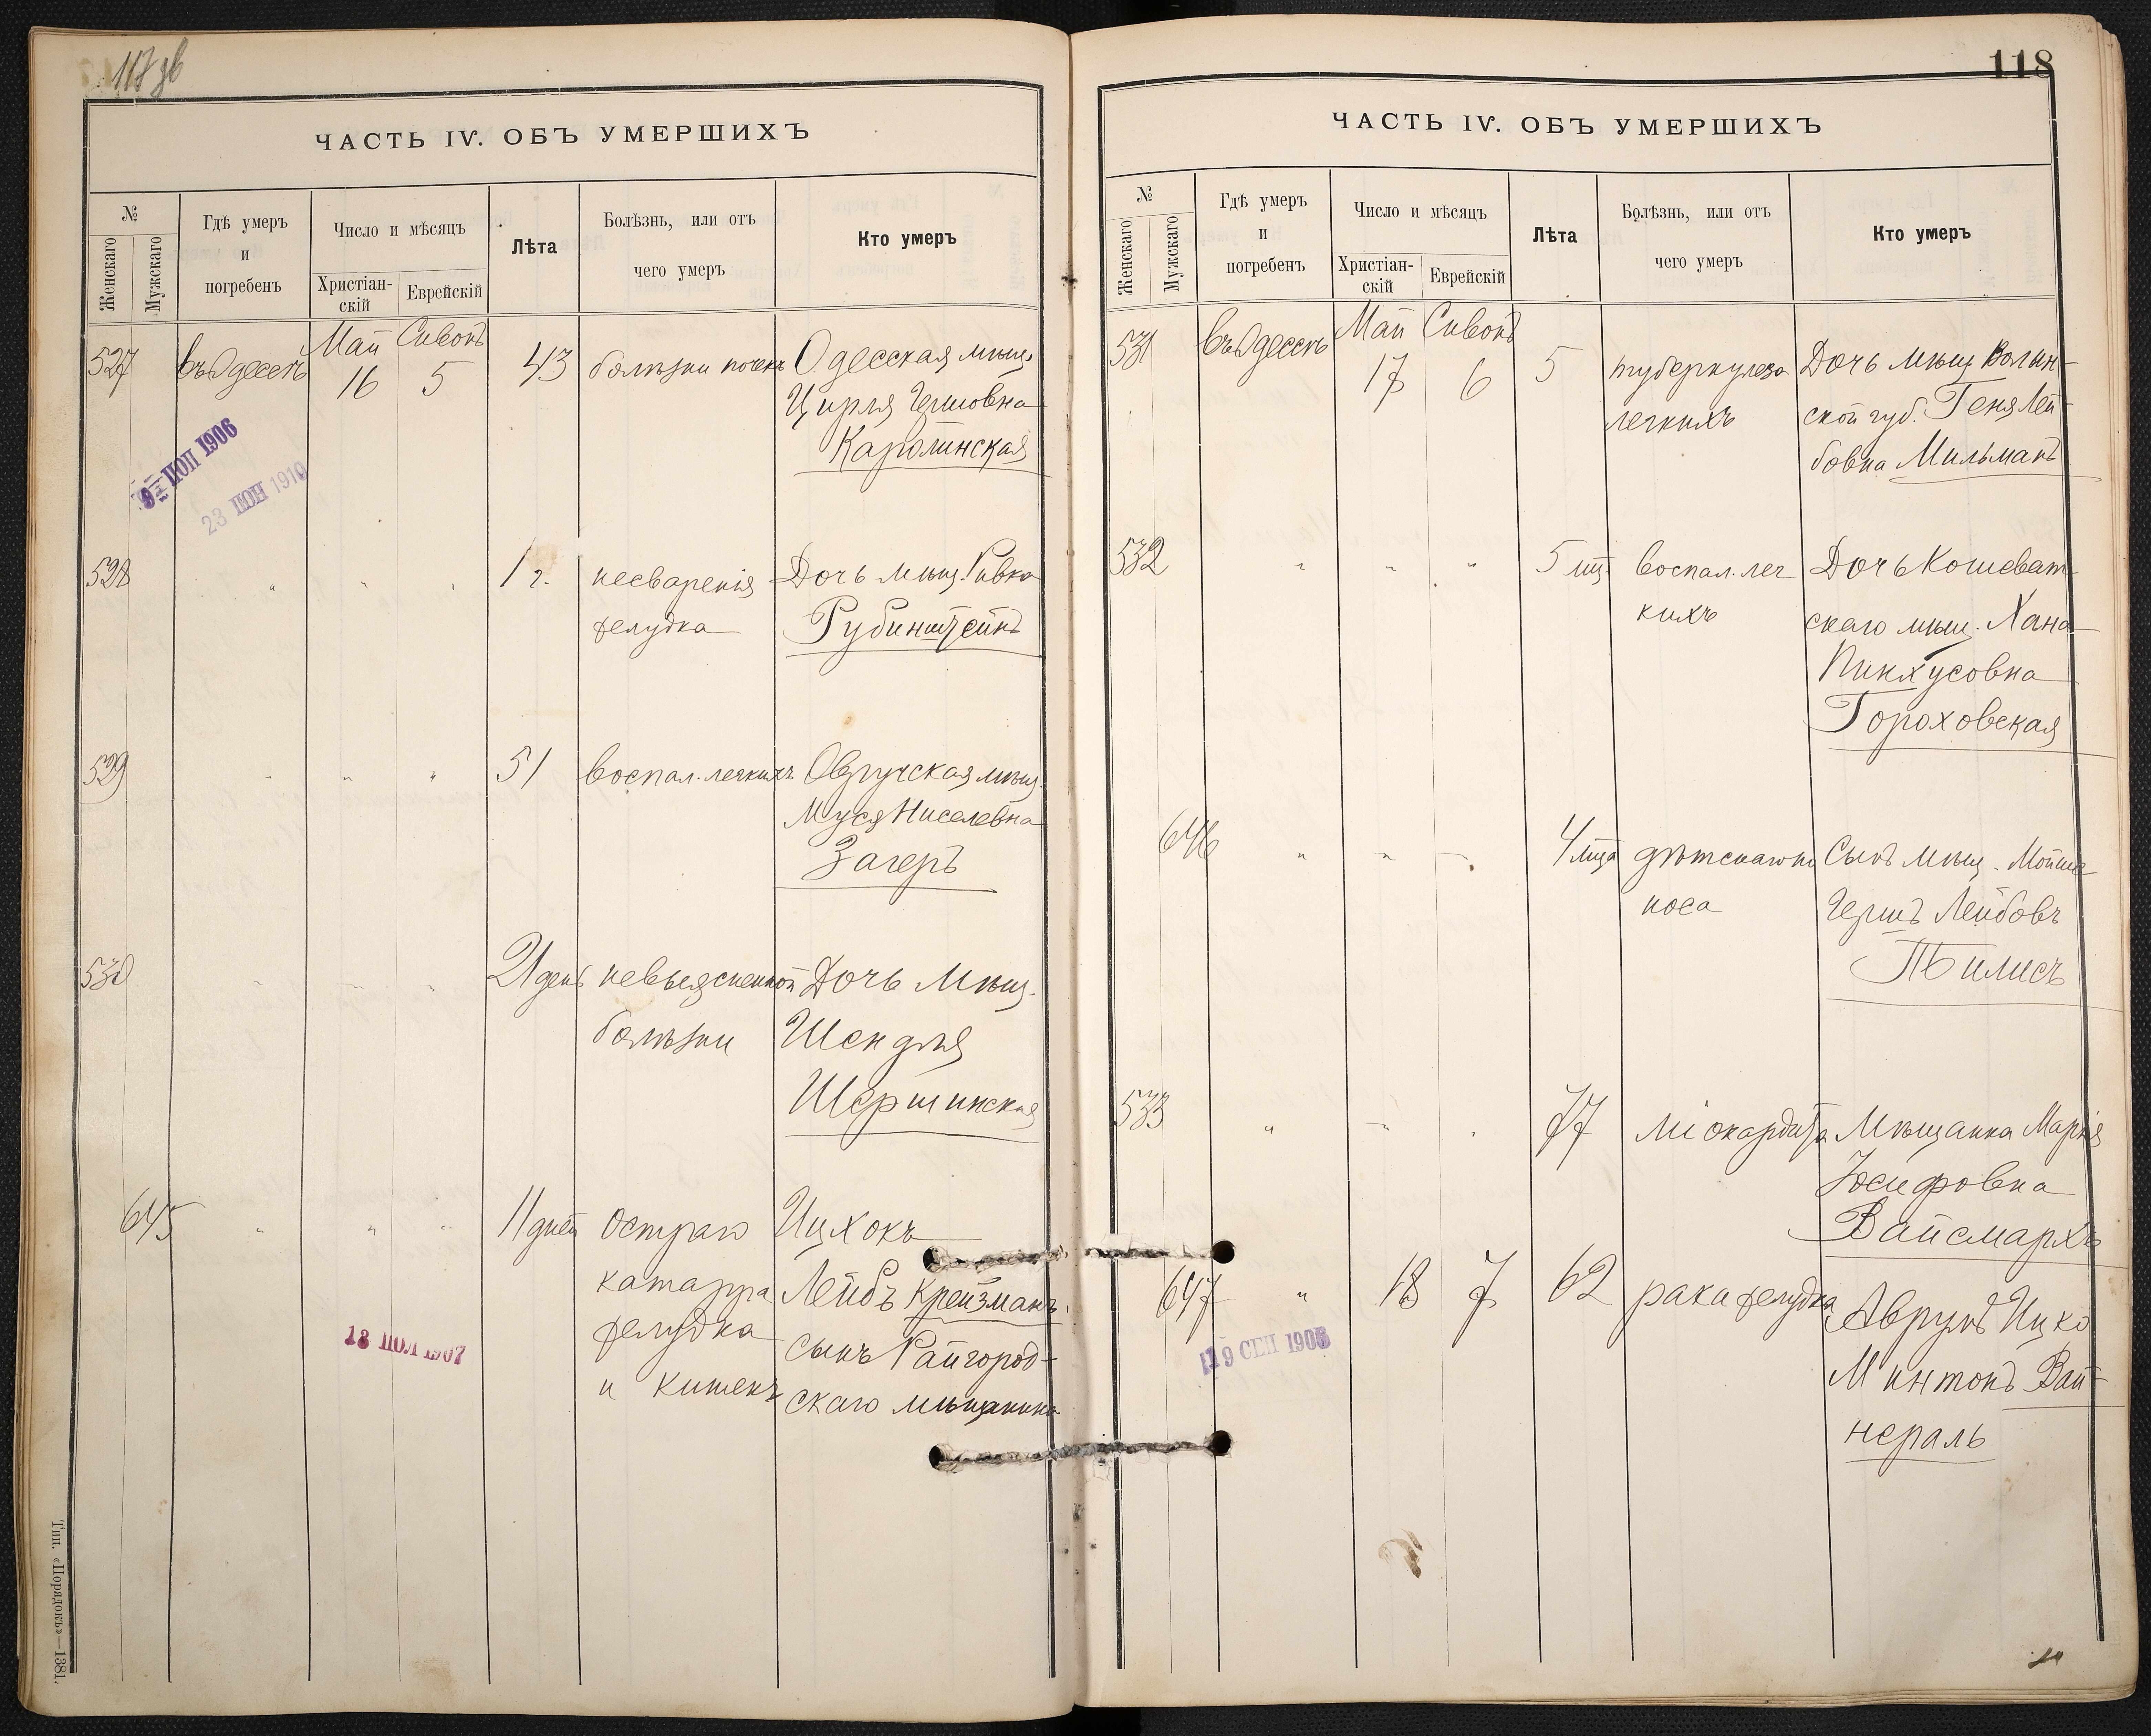 117 об
ЧАСТЬ IV. ОБЪ УМЕРШИХЪ
№
Женскаго
Мужскаго
Гдѣ умеръ
и
погребенъ
Число и мѣсяцъ
Христіан-
скій
Еврейскій
Лѣта
Болѣзнь, или отъ
чего умеръ
Кто умеръ
527 въ Одессѣ Май 16 Сивонъ 5 43 болѣзни почекъ Одесская мѣщ.
Цирля Гершовна
Каролинская
ІЮН 1906
23 ІЮН 1910
528 " " " 1 г. несваренія Дочь мѣщ. Ривка
желудка Рубинштейнъ
529 " " " 51 воспал. легкихъ Овручская мѣщ.
Муся Ниселевна
Загеръ
530 " " " 21 день невыясненной Дочь мѣщ.
болѣзни Шендля
Шершинская
645 " " " 11 дней остраго Ицхокъ
катарра Лейбъ Крейзманъ.
желудка сынъ Райгород-
и кишекъ скаго мѣщанина
18 ІЮЛ 1907
Тип. «Порядокъ»—1381.
118
ЧАСТЬ IV. ОБЪ УМЕРШИХЪ
№
Женскаго
Мужскаго
Гдѣ умеръ
и
погребенъ
Число и мѣсяцъ
Христіан-
скій
Еврейскій
Лѣта
Болѣзнь, или отъ
чего умеръ
Кто умеръ
531 въ Одессѣ Май 17 Сивонъ 6 5 туберкулеза Дочь мѣщ. Волын-
легкихъ ской губ. Геня Лей-
бовна Мильманъ
532 " " " 5 мц воспал. лег Дочь Кошеват-
кихъ скаго мѣщ. Хана
Пинхусовна
Гороховская
646 " " " 4 мца Сынъ мѣщ. Мойше
Гершъ Лейбовъ
533 " " " 77 міокардита Мѣщанка Марія
Іосифовна
Вайсмархъ
647 " 18 7 62 рака желудка Аврумъ Ицко
Минтонъ Вай-
нераль
19 СЕН 1906